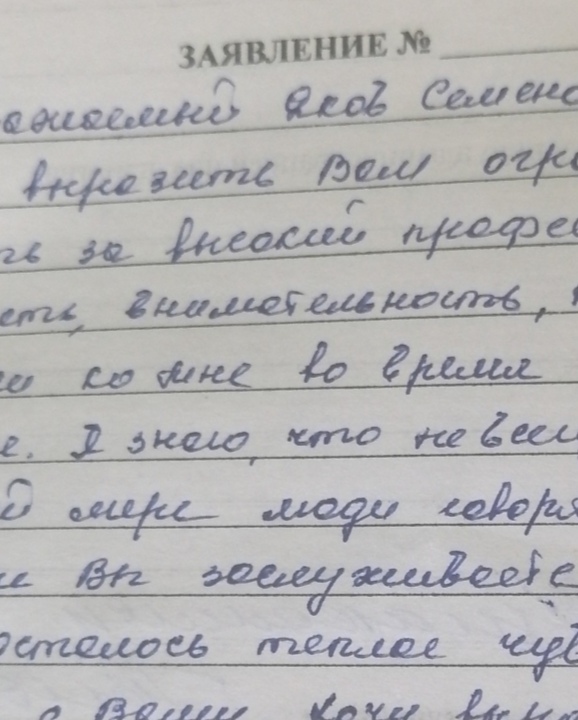 ЗАЯВЛЕНИЕ №
ажаемый Яков Семено
выразить Вам огро
ть за высокий профес
сть, внимательность,
ко мне во время
е. Я знаю, что не всем
й мере люди говоря
Вы заслуживаете
осталось теплое чув
с Вами Хочу